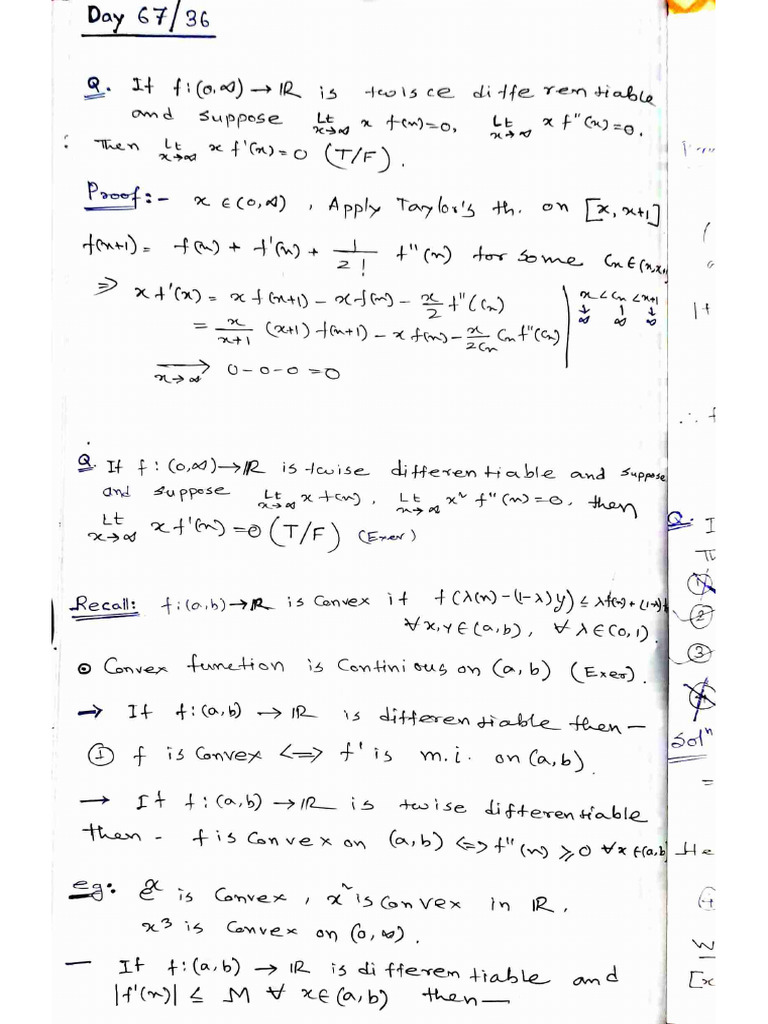 Day 67/36
Q. If f:(0,∞) → ℝ is twisce differentiable
and suppose Lt x→∞ x f(x)=0, Lt x→∞ x f''(x)=0.
Then Lt x→∞ x f'(x)=0 (T/F).
Proof:- x∈(0,∞), Apply Taylor's th. on [x, x+1]
f(x+1) = f(x) + f'(x) + 1/2! f''(x) for some Cx∈(x,x+1
⇒ x f'(x) = x f(x+1) - x f(x) - x/2 f''(Cx)
x < Cx < x+1
↓ ↓ ↓
∞ ∞ ∞
= x/x+1 (x+1) f(x+1) - x f(x) - x/2Cx Cx f''(Cx)
⟶ x→∞ 0-0-0=0
Q. If f:(0,∞)→ℝ is twise differentiable and suppose
and suppose Lt x→∞ x f(x), Lt x→∞ x² f''(x)=0, then
Lt x→∞ x f'(x)=0 (T/F) (Exer)
Recall: f:(a,b)→ℝ is Convex if f(λ(x)-(1-λ)y) ≤ λf(x)+(1-λ)f
∀x,y∈(a,b), ∀ λ∈(0,1).
⊙ Convex function is Continious on (a,b) (Exer).
→ If f:(a,b) → ℝ is differentiable then —
① f is Convex <=> f' is m.i. on (a,b).
→ If f:(a,b) → ℝ is twise differentiable
then - f is Convex on (a,b) <=> f''(x) ≥ 0 ∀x∈(a,b)
eg: eˣ is Convex, x² is Convex in ℝ.
x³ is Convex on (0,∞).
— If f:(a,b) → ℝ is differentiable and
|f'(x)| ≤ M ∀ x∈(a,b) then —
∴ f
Q. I
①
②
③
④
Solⁿ
=
He
W
[x